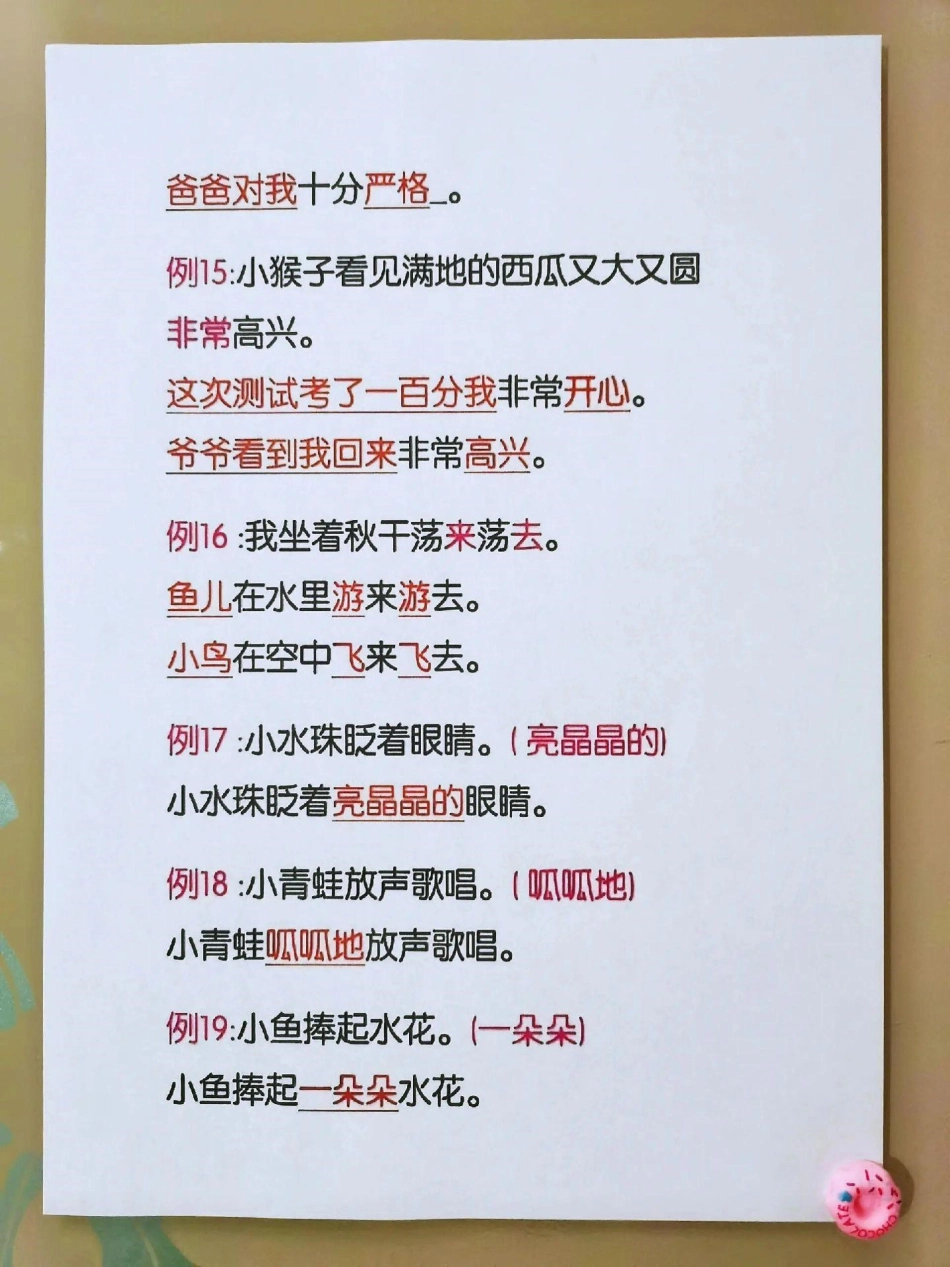 爸爸对我十分严格_。
例15:小猴子看见满地的西瓜又大又圆
非常高兴。
这次测试考了一百分我非常开心。
爷爷看到我回来非常高兴。
例16 :我坐着秋干荡来荡去。
鱼儿在水里游来游去。
小鸟在空中飞来飞去。
例17 :小水珠眨着眼睛。( 亮晶晶的)
小水珠眨着亮晶晶的眼睛。
例18 :小青蛙放声歌唱。( 呱呱地)
小青蛙呱呱地放声歌唱。
例19:小鱼捧起水花。(一朵朵)
小鱼捧起一朵朵水花。
CHOCOLATE